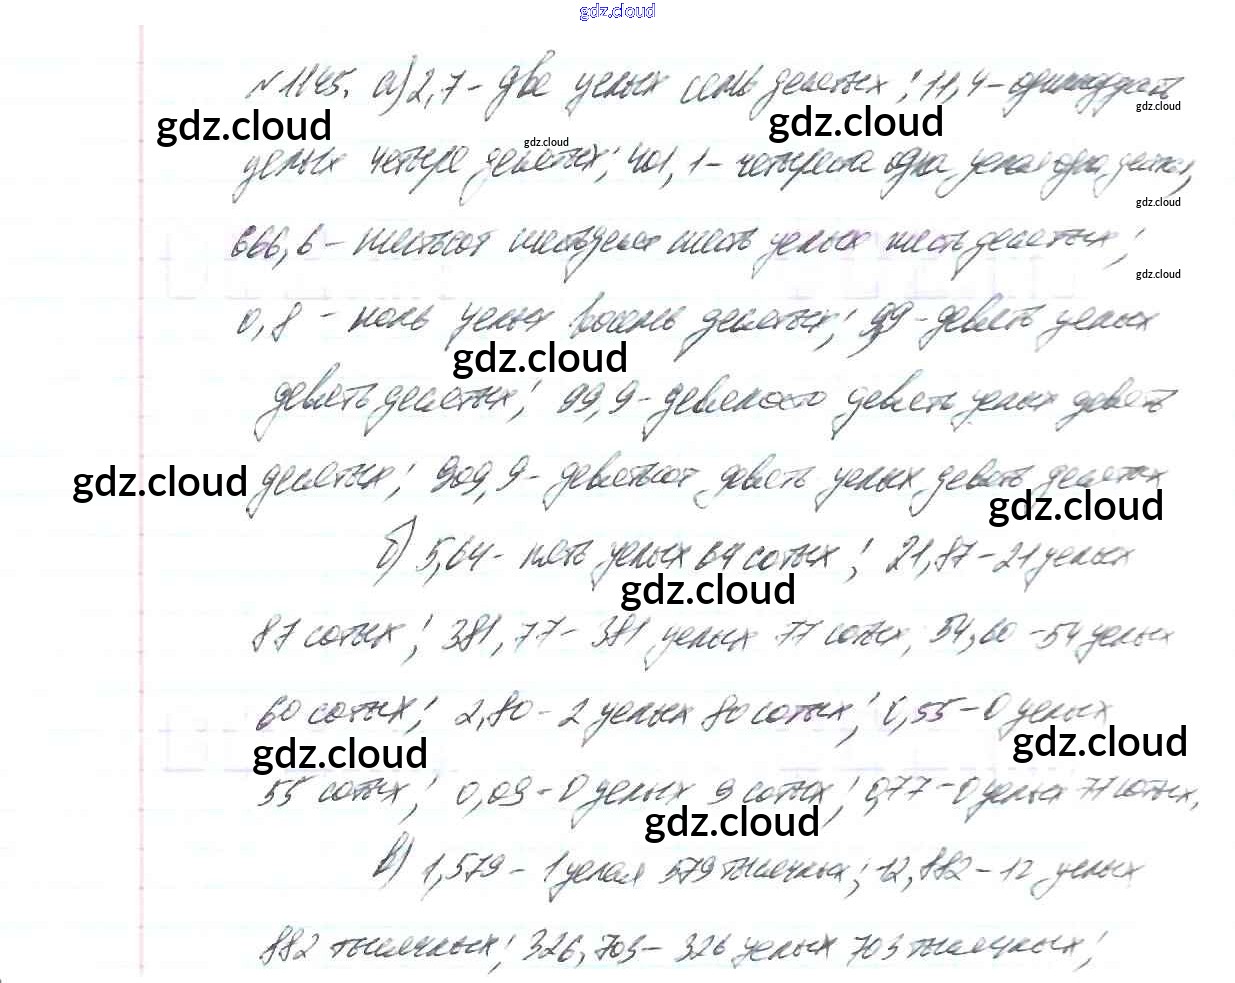 gdz.cloud
№1145. а) 2,7 - две целых семь десятых; 11,4 - одиннадцать
gdz.cloud gdz.cloud gdz.cloud
целых четыре десятых; 401,1 - четыреста одна целая одна десятая,
gdz.cloud
gdz.cloud
666,6 - шестьсот шестьдесят шесть целых шесть десятых;
gdz.cloud
0,8 - ноль целых восемь десятых; 9,9 - девять целых
gdz.cloud
девять десятых; 99,9 - девяносто девять целых девять
десятых; 909,9 - девятьсот девять целых девять десятых
gdz.cloud gdz.cloud
б) 5,64 - пять целых 64 сотых; 21,87 - 21 целых
gdz.cloud
87 сотых; 381,77 - 381 целых 77 сотых, 54,60 - 54 целых
60 сотых; 2,80 - 2 целых 80 сотых; 0,55 - 0 целых
gdz.cloud gdz.cloud
55 сотых; 0,09 - 0 целых 9 сотых; 0,77 - 0 целых 77 сотых,
gdz.cloud
в) 1,579 - 1 целая 579 тысячных; 12,882 - 12 целых
882 тысячных; 326,703 - 326 целых 703 тысячных;